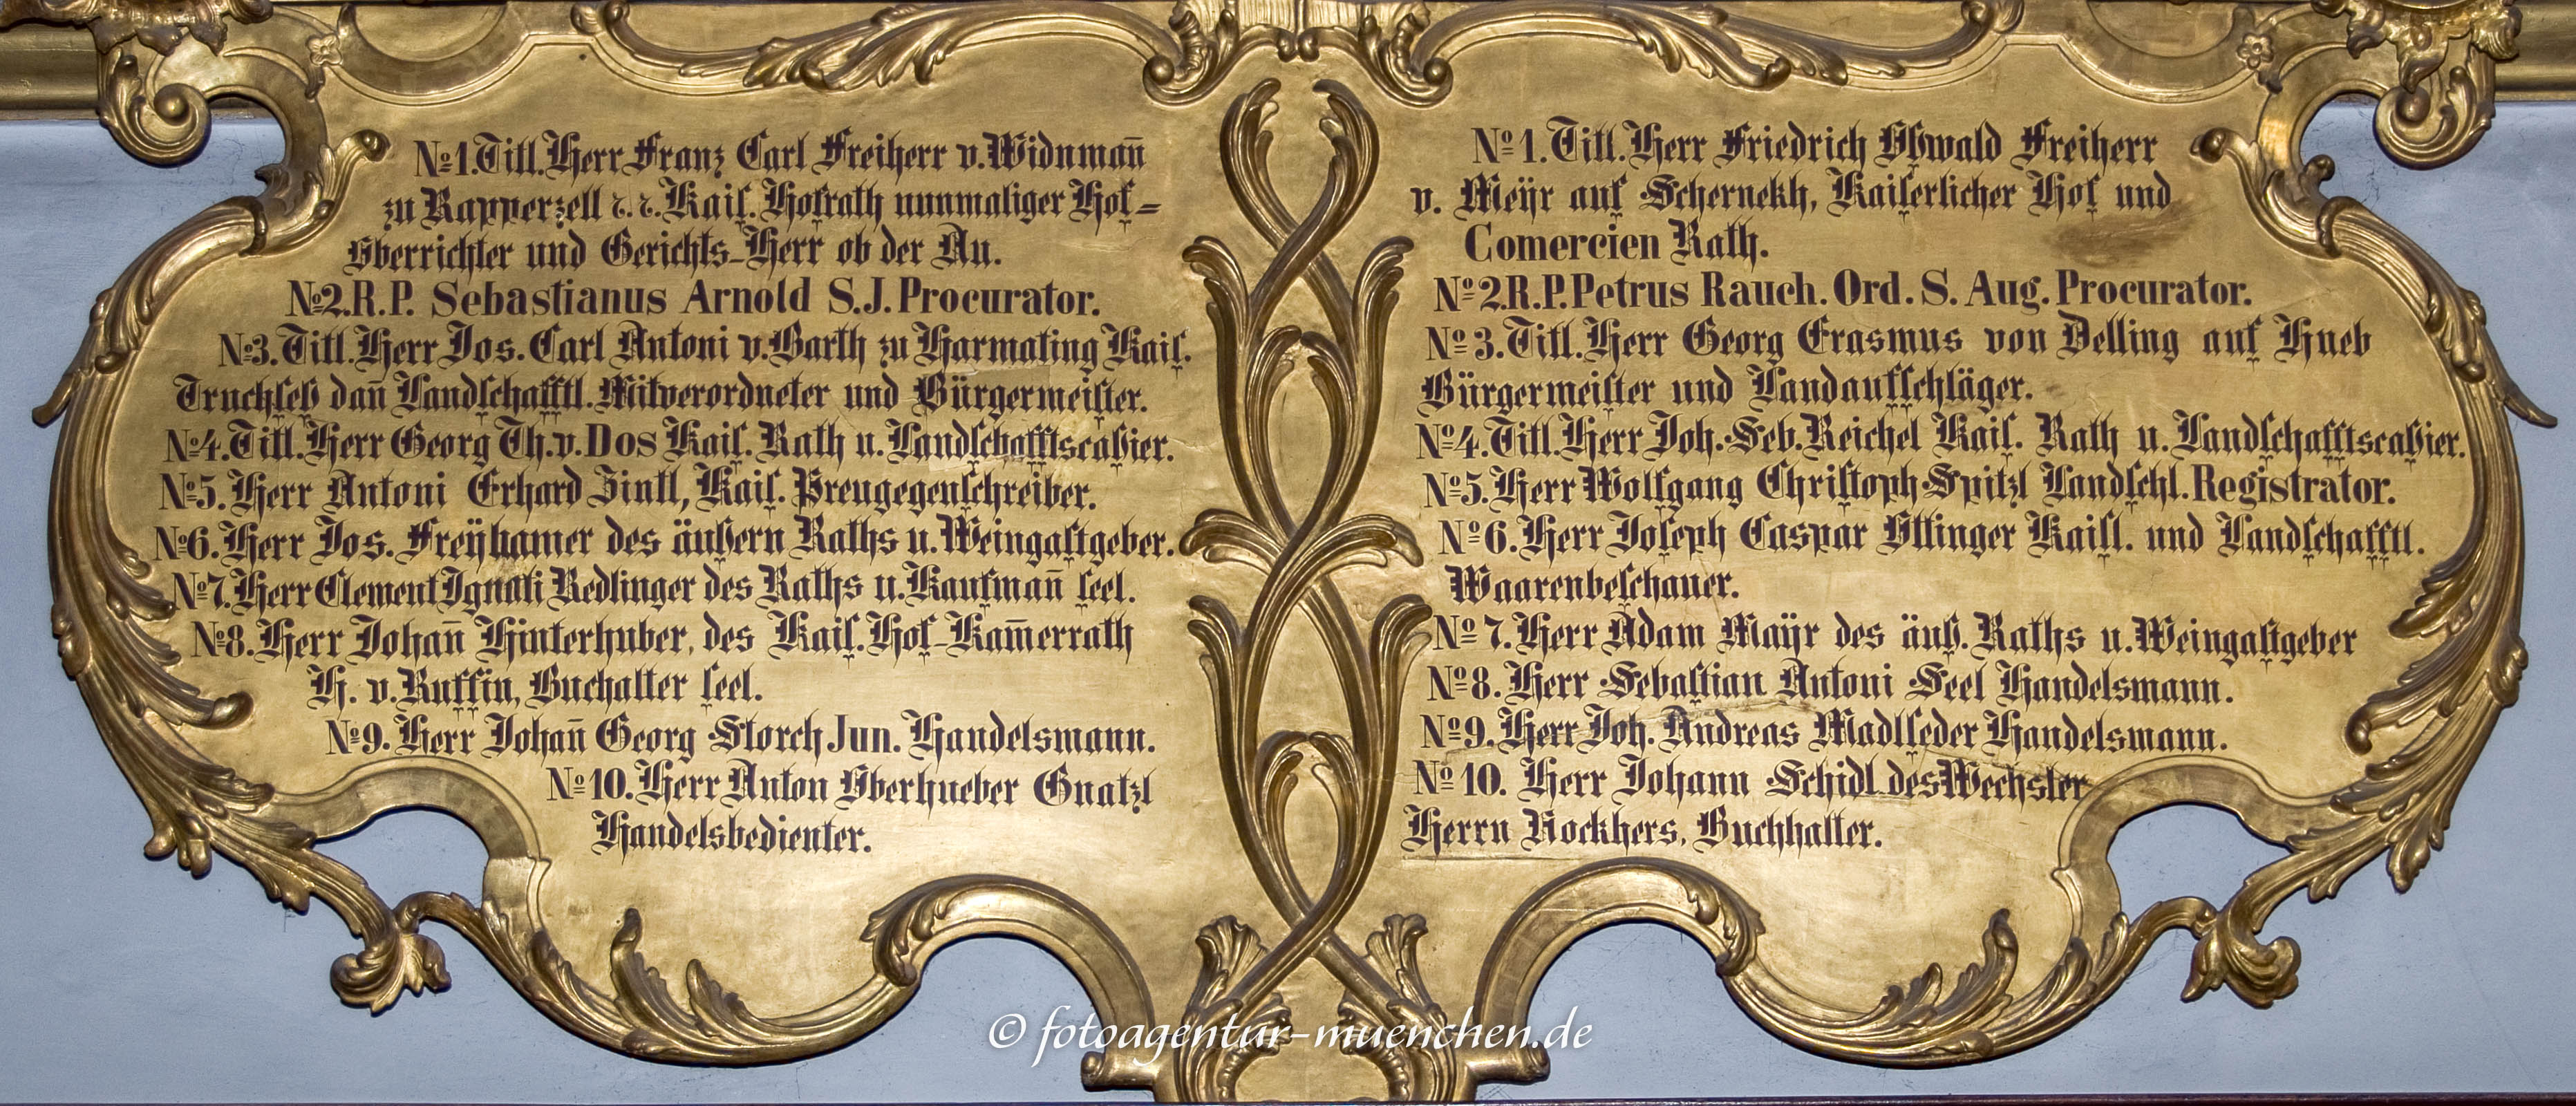 No 1. Titl. Herr Franz Carl Freiherr v. Widnman̄
zu Rapperzell ꝛ. ꝛ. Kaiſ. Hofrath nunmaliger Hof=
Oberrichter und Gerichts-Herr ob der Au.
No 2. R. P. Sebastianus Arnold S. J. Procurator.
No 3. Titl. Herr Jos. Carl Antoni v. Barth zu Harmating Kaiſ.
Truchſeß dan̄ Landſchafftl. Mitverordneter und Bürgermeiſter.
No 4. Titl. Herr Georg Th. v. Dos Kaiſ. Rath u. Landſchafftscaßier.
No 5. Herr Antoni Erhard Zintl, Kaiſ. Preugegenſchreiber.
No 6. Herr Jos. Freÿhamer des äußern Raths u. Weingaſtgeber.
No 7. Herr Clement Ignati Redlinger des Raths u. Kaufman̄ ſeel.
No 8. Herr Johan̄ Hinterhuber, des Kaiſ. Hof-Kam̄errath
H. v. Ruffin, Buchalter ſeel.
No 9. Herr Johan̄ Georg Storch Jun. Handelsmann.
No 10. Herr Anton Oberhueber Gnatzl
Handelsbedienter.
No 1. Titl. Herr Friedrich Oßwald Freiherr
v. Meÿr auf Schernekh, Kaiſerlicher Hof und
Comercien Rath.
No 2. R. P. Petrus Rauch. Ord. S. Aug. Procurator.
No 3. Titl. Herr Georg Erasmus von Delling auf Hueb
Bürgermeiſter und Landaufſchläger.
No 4. Titl. Herr Joh. Seb. Reichel Kaiſ. Rath u. Landſchafftscaßier.
No 5. Herr Wolfgang Chriſtoph Spitzl Landſchl. Registrator.
No 6. Herr Joſeph Caspar Ottinger Kaiſl. und Landſchafftl.
Waarenbeſchauer.
No 7. Herr Adam Maÿr des äuß. Raths u. Weingaſtgeber
No 8. Herr Sebaſtian Antoni Seel Handelsmann.
No 9. Herr Joh. Andreas Madlſeder Handelsmann.
No 10. Herr Johann Schidl des Wechsler
Herrn Nockhers, Buchhalter.
© fotoagentur-muenchen.de